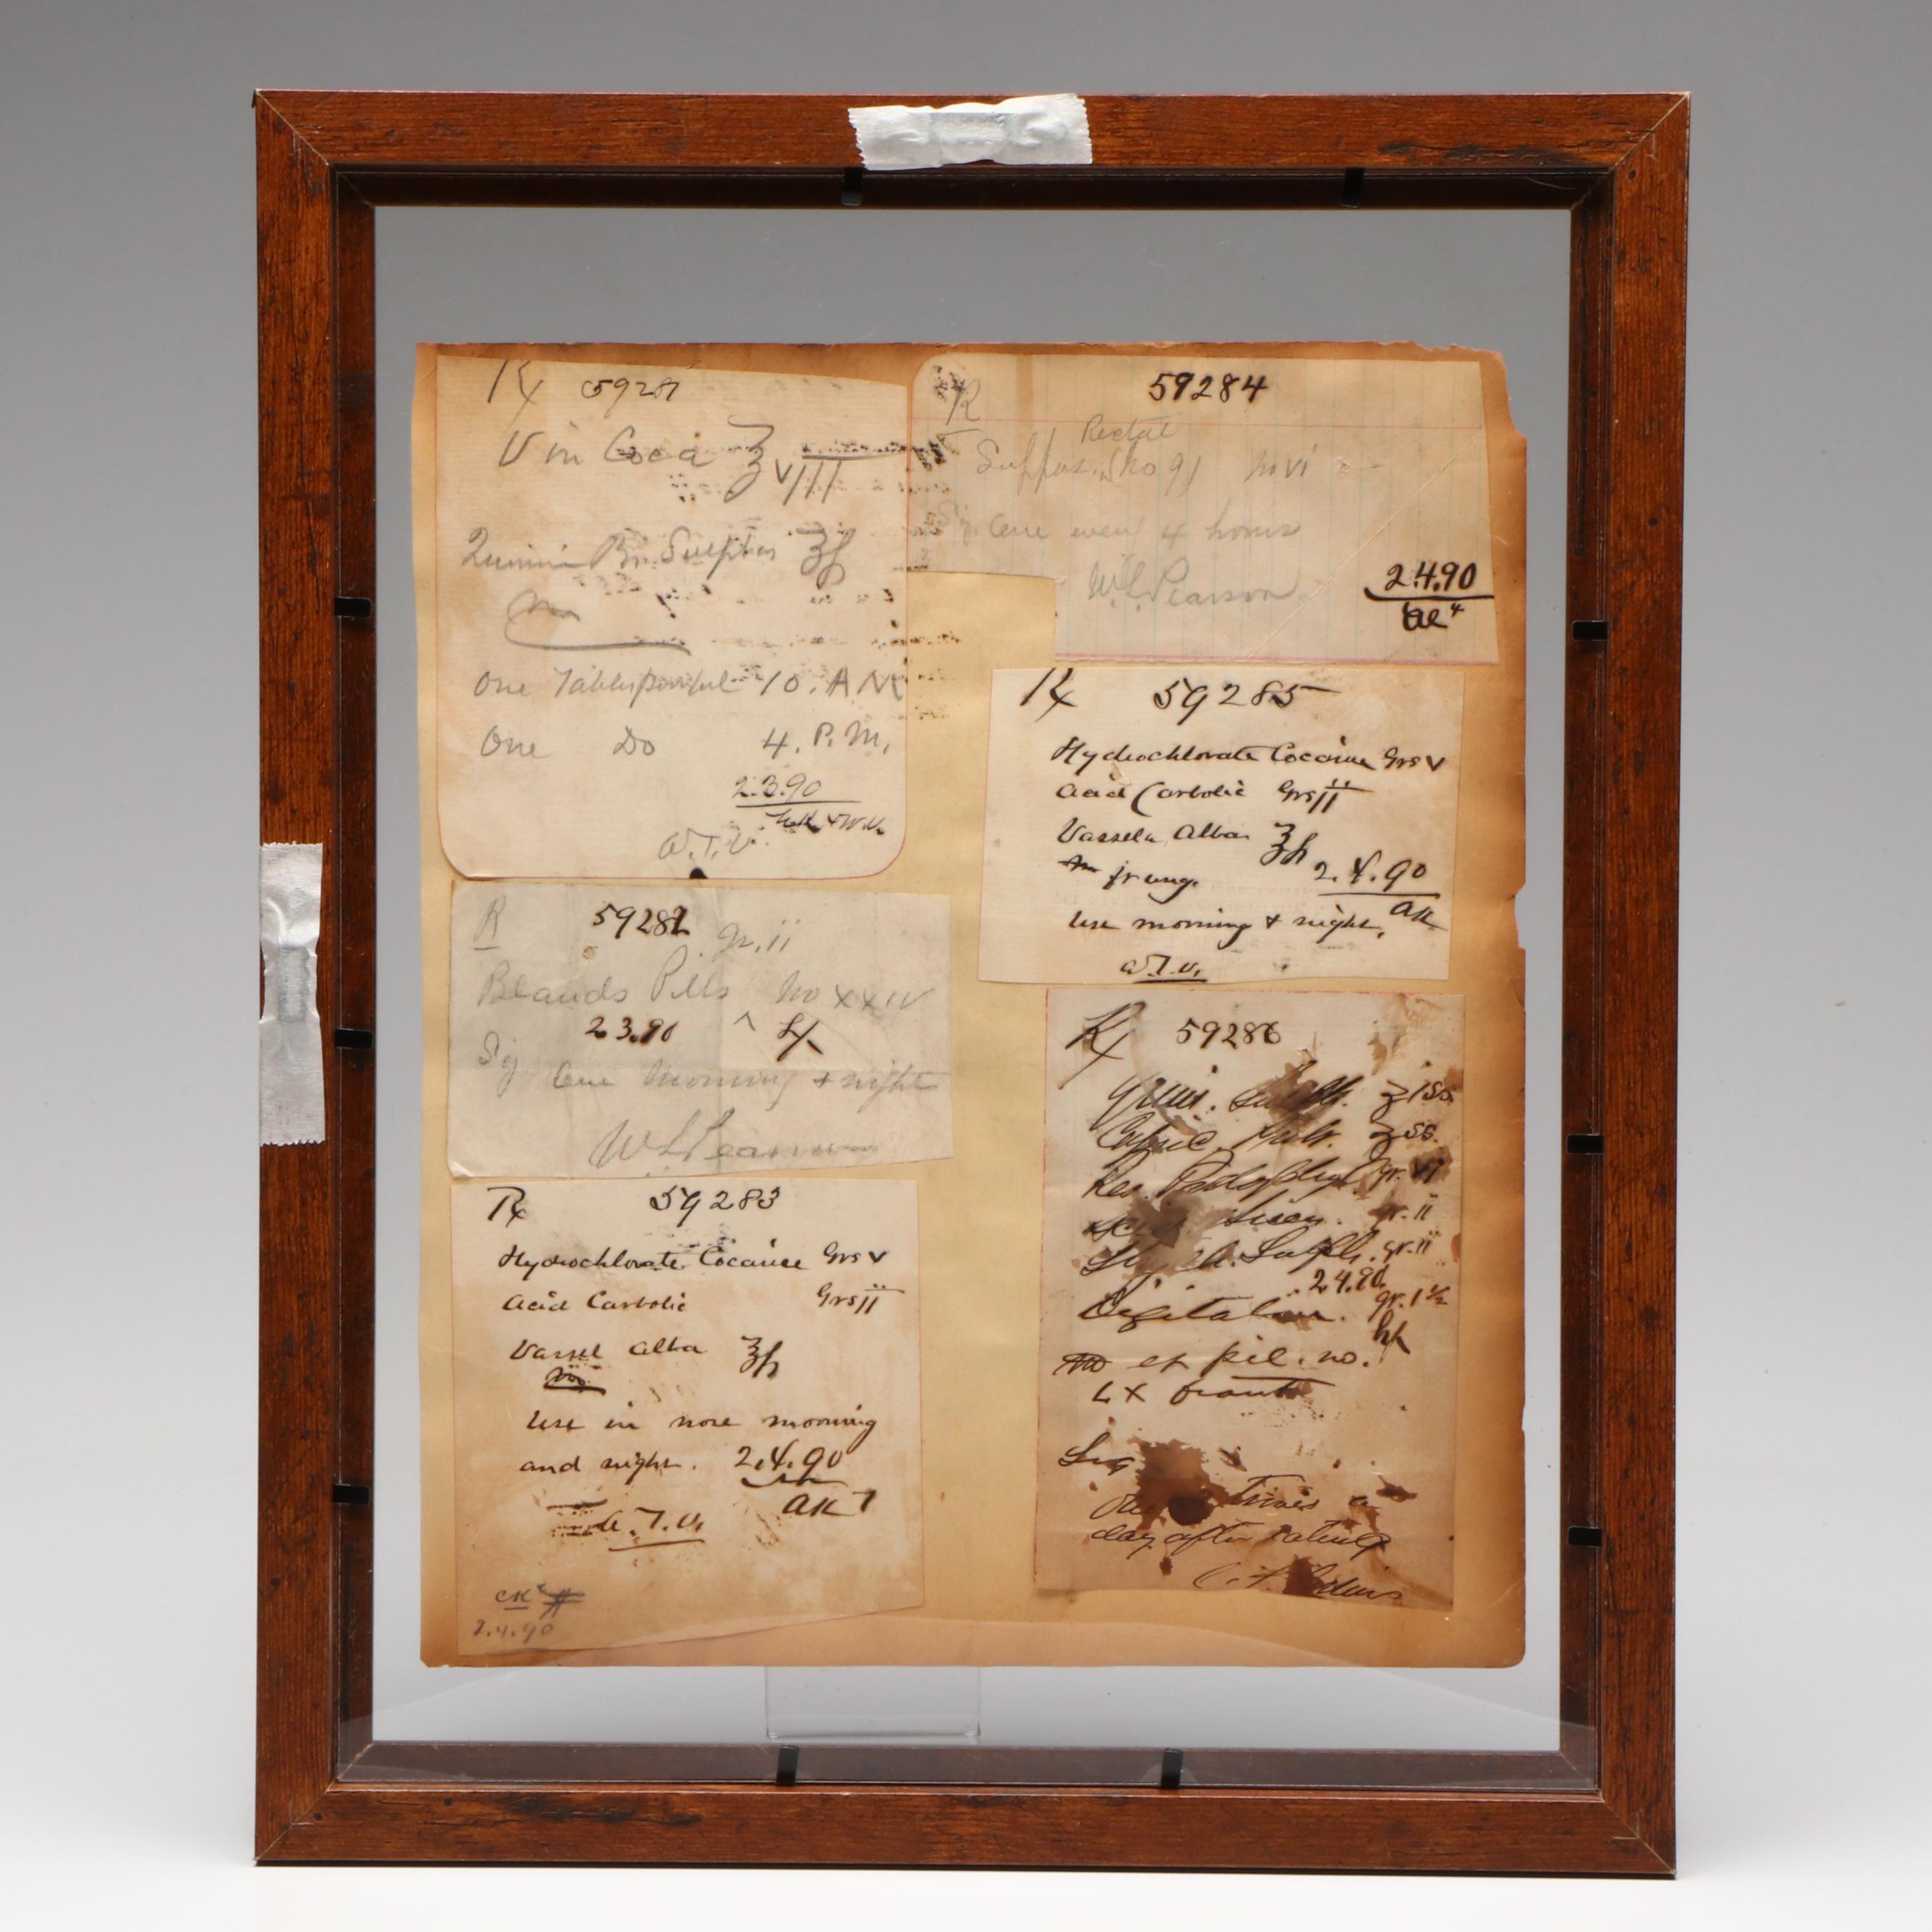 Rx 59281
Vin Coca ℥ VIII
Sulphas
One Tablespoonful 10. A M
One Do 4. P. M.
2.3.90
W.T.V.
R 59282
gr. ii
Blauds Pills No XXIV
2 3.90
Sig. One Morning + night
W L Pearson
Rx 59283
Hydrochlorate Cocaine Grs V
Acid Carbolic Grs ii
Vassel Alba ℥
Use in nose morning
and night. 2.4.90
AK
W.T.V.
CK
2.4.90
R 59284
Rectal
Suppos. (No 9) No VI
Sig. One every 4 hours
W L Pearson
2.4.90
Rx 59285
Hydrochlorate Cocaine Grs V
Acid Carbolic Grs ii
Vasseln Alba ℥
M ft ung. 2.4.90
Use morning + night. AK
W.T.V.
Rx 59286
Quin. Sulph. ʒ iss
Capsic. Pulv. ʒ ss.
Res. Podophyl. gr. VI
gr. ii
Sulph. gr. ii
2.4.90
Digitalin. gr. 1 ½
M et pil. no.
LX
Sig
Times a
day after eating